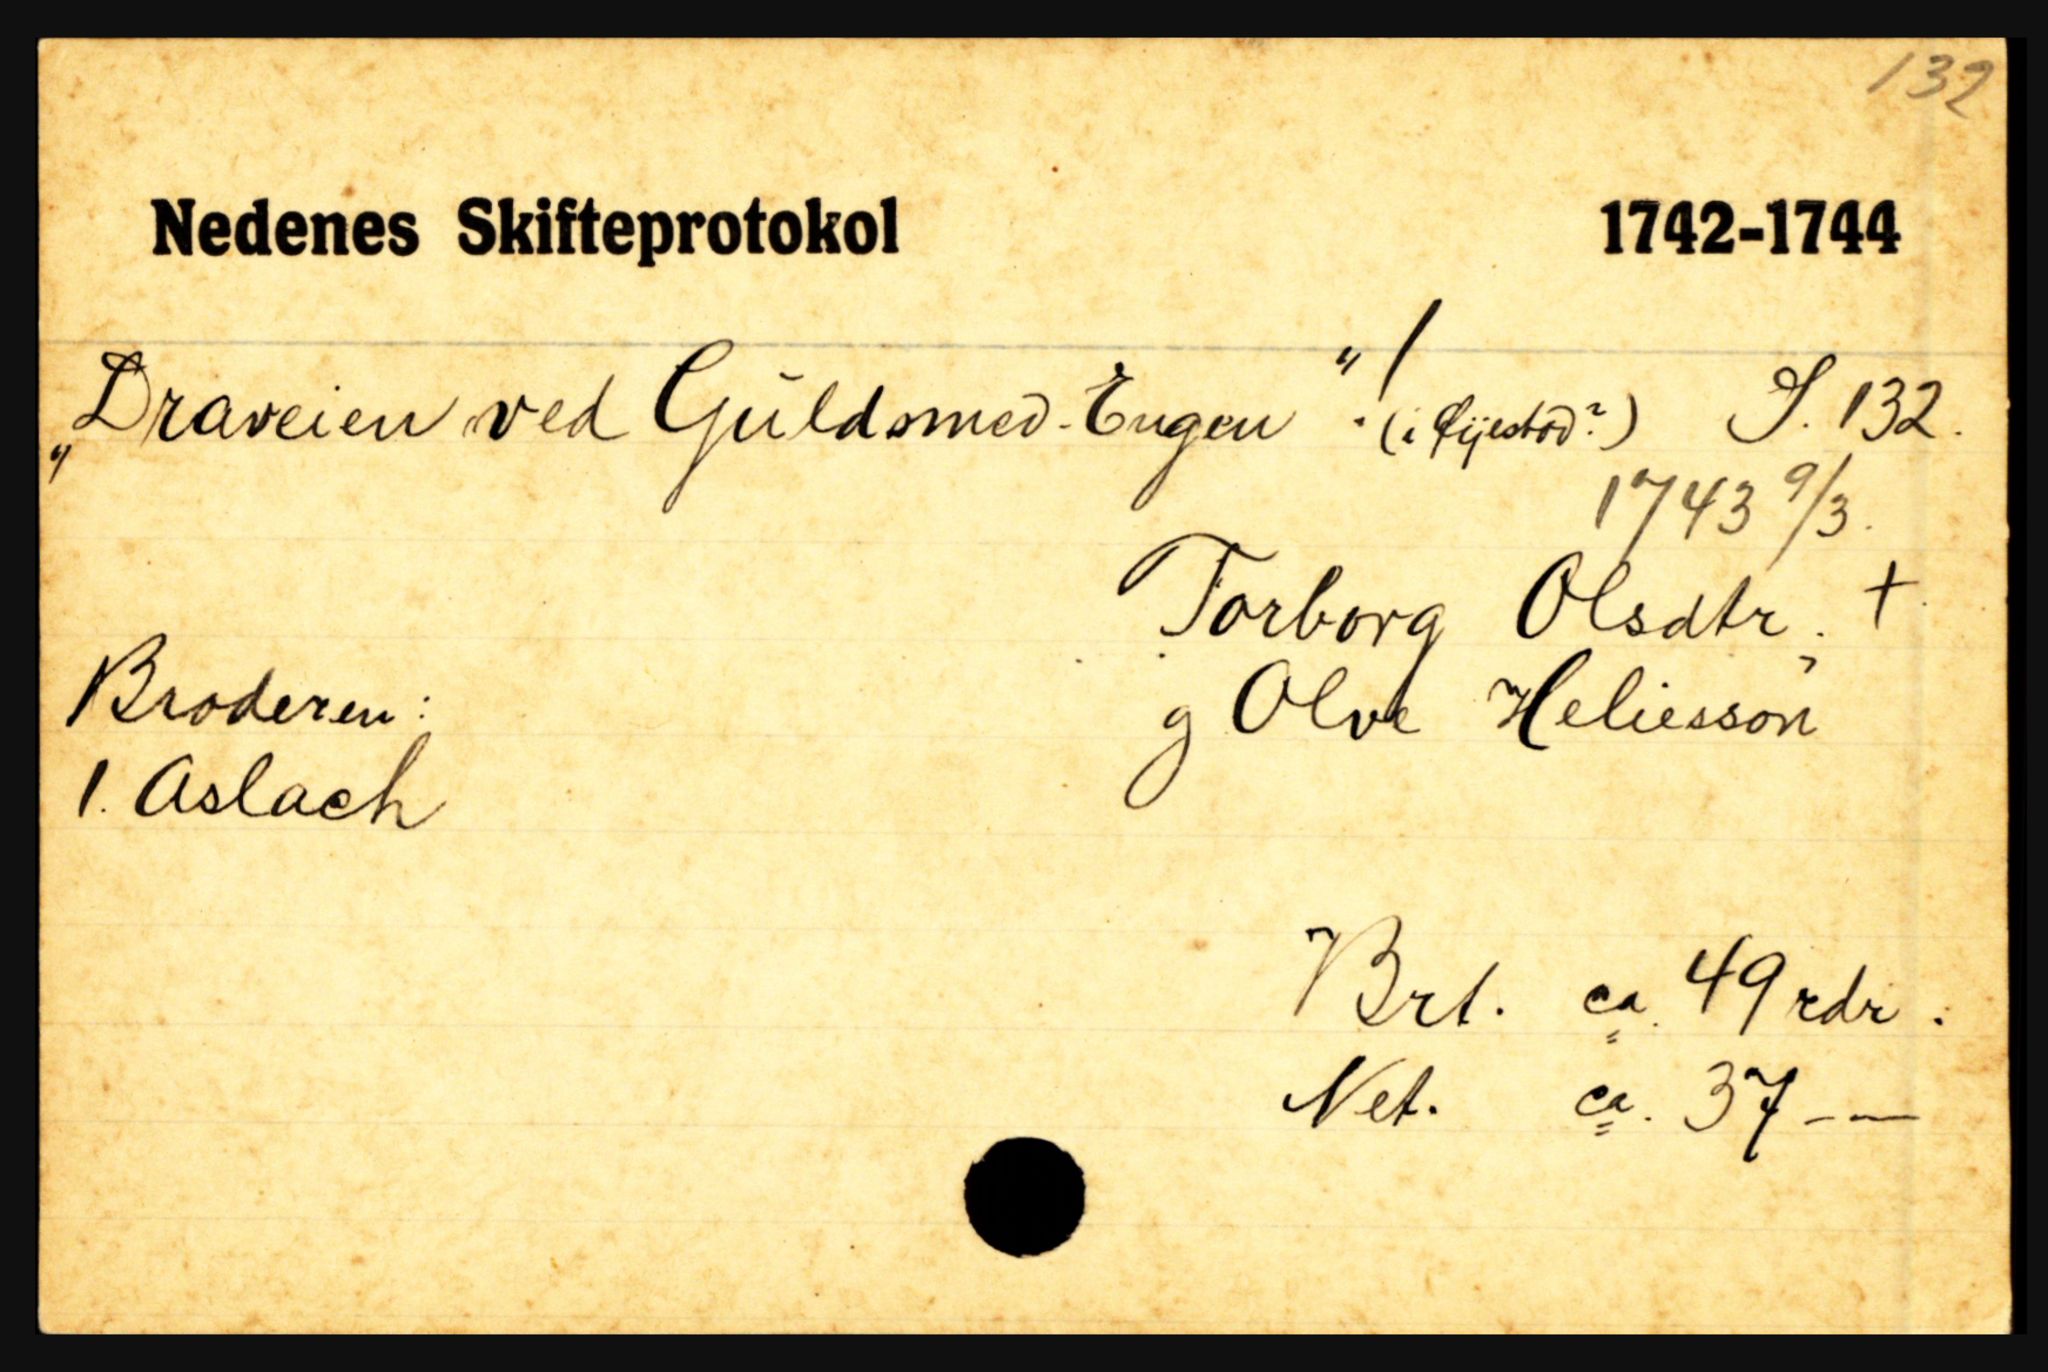 132
Nedenes Skifteprotokol 1742-1744
„Draveien ved Guldsmed-Engen". / (i Øijestad?) S. 132.
1743 9/3.
Torborg Olsdtr. +
Broderen: g Olve Heliesson
1. Aslach
Brt. ca. 49 rdr.
Net. ca. 37 - —